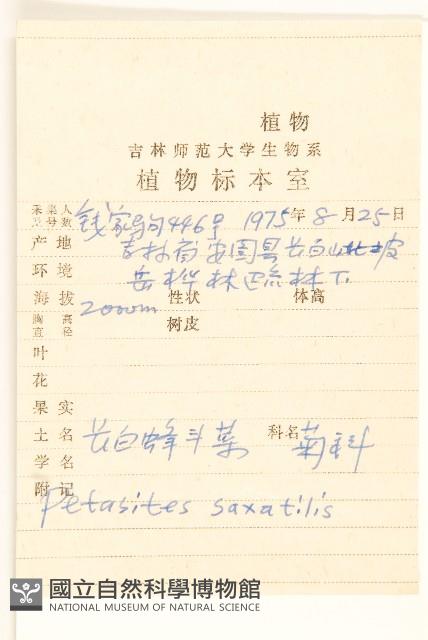 植物
吉林师范大学生物系
植物标本室
采集人及号数 钱家驹446号 1975年8月25日
产地 吉林省安图县长白山北坡
环境 岳桦林疏林下
海拔 2000m 性状 体高
胸高直径 树皮
叶
花
果实
土名 长白蜂斗菜 科名 菊科
学名
附记 Petasites saxatilis
國立自然科學博物館
NATIONAL MUSEUM OF NATURAL SCIENCE